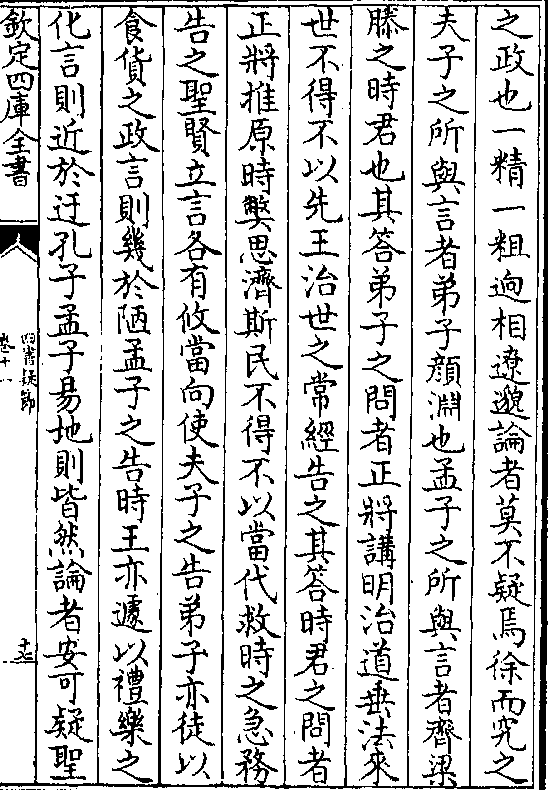 之政也一精一粗逈相遼邈論者莫不疑焉徐而究之
夫子之所與言者弟子顔淵也孟子之所與言者齊梁
滕之時君也其答弟子之問者正將講明治道垂法來
世不得不以先王治世之常經告之其答時君之問者
正將推原時弊思濟斯民不得不以當代救時之急務
告之聖賢立言各有攸當向使夫子之告弟子亦徒以
食貨之政言則幾於陋孟子之告時王亦遽以禮樂之
化言則近於迂孔子孟子易地則皆然論者安可疑聖
欽定四庫全書
四書疑節
卷十一
十七